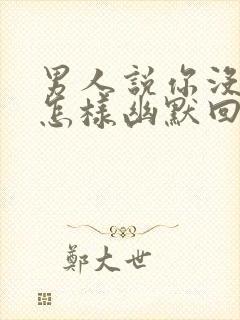 男人說你沒
怎樣幽默回
鄭大世